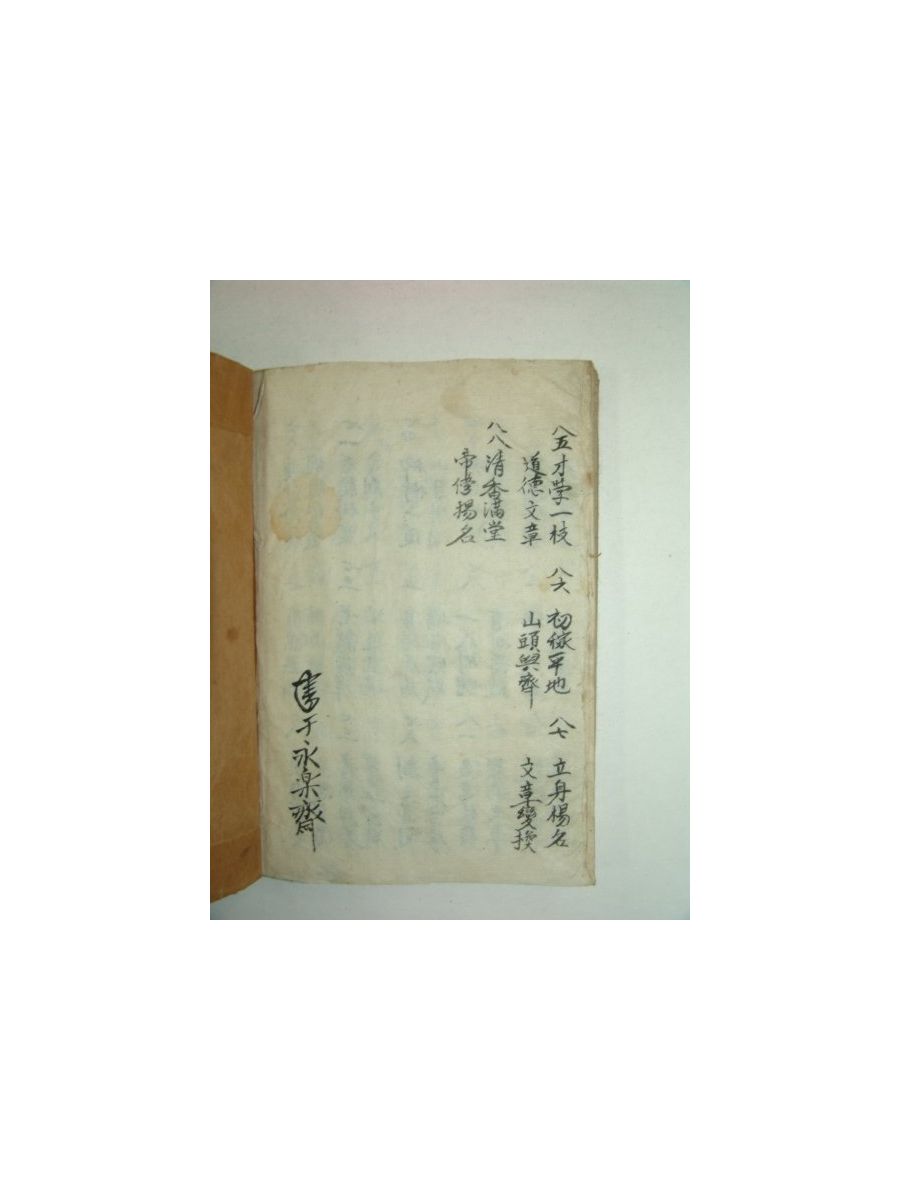 八五 才學一枝 八六 初 平地 八七 立身揚名
道德文章 山頭與齊 文章變換
八八 清香滿堂
帝傍揚名
書于永楽齋